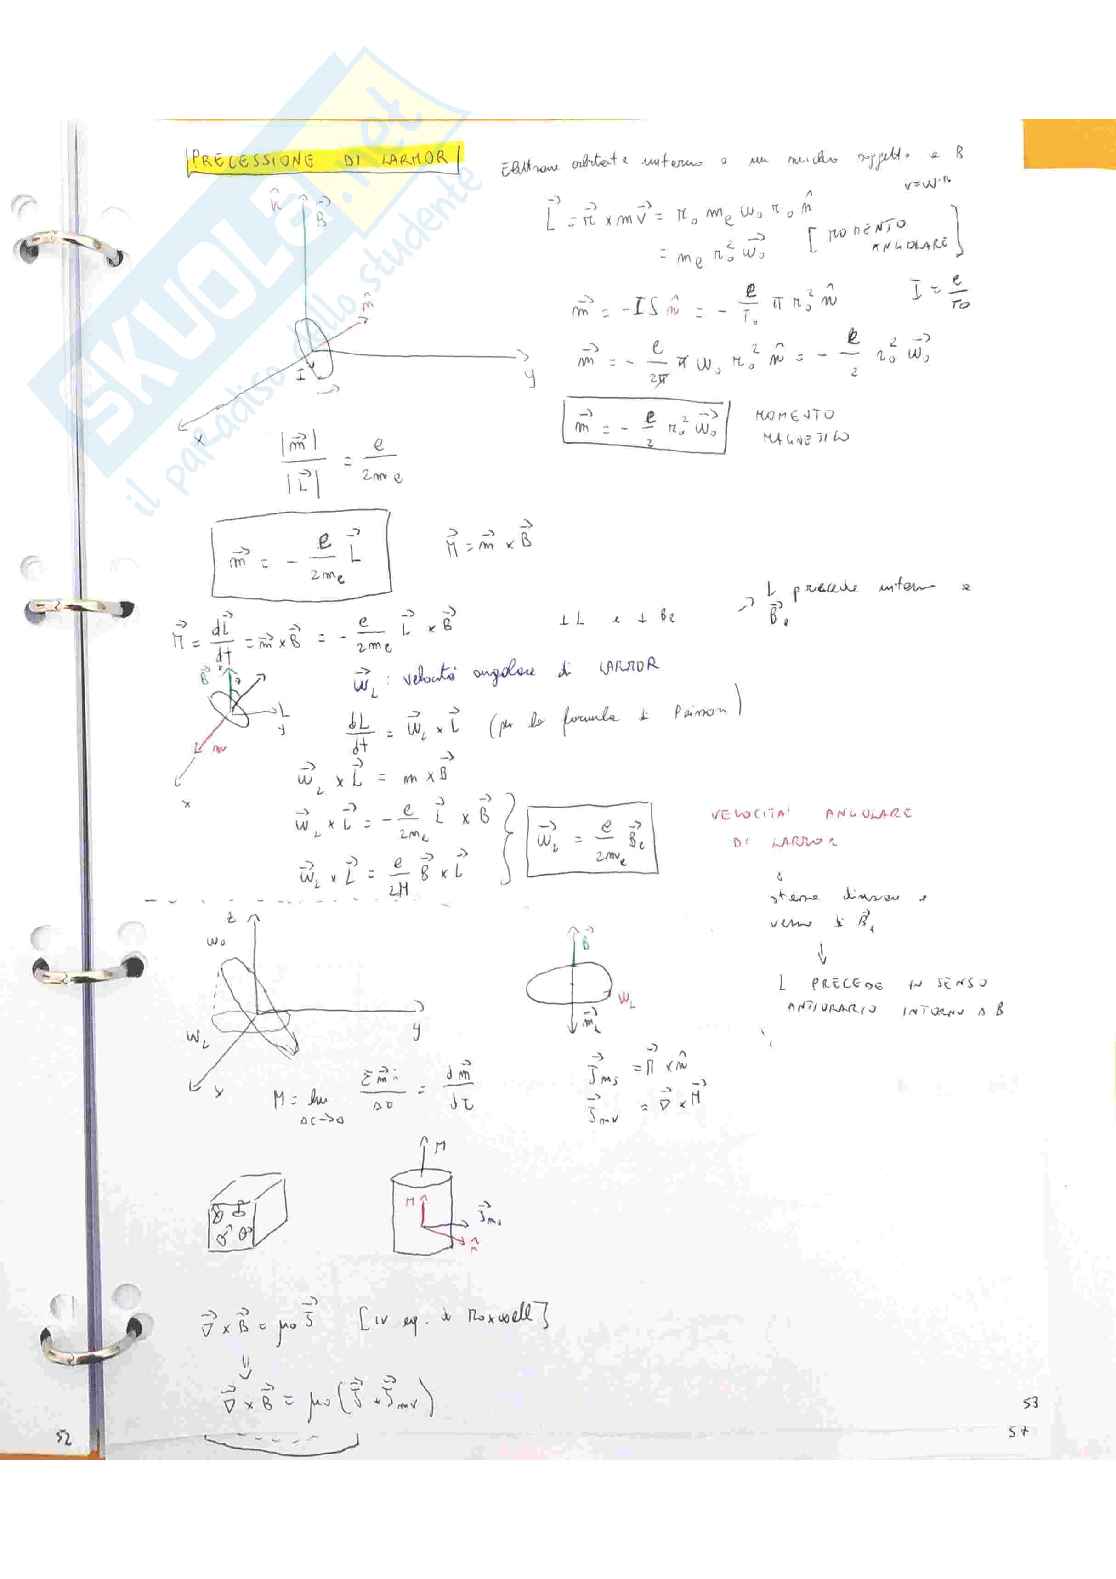 PRECESSIONE DI LARMOR
Elettrone orbitante intorno a un nucleo soggetto a B
v=ω·r
n̂ B⃗
L⃗ = r⃗ × mv⃗ = r₀ mₑ ω₀ r₀ n̂
= mₑ r₀² ω⃗₀ [MOMENTO ANGOLARE]
m⃗ = -IS n̂ = - e/T₀ π r₀² n̂ I = e/T₀
m⃗ = - e/2π π ω₀ r₀² n̂ = - e/2 r₀² ω⃗₀
n̂
I
x y
m⃗ = - e/2 r₀² ω⃗₀ MOMENTO MAGNETICO
|m⃗|/|L⃗| = e/2mₑ
m⃗ = - e/2mₑ L⃗ M⃗ = m⃗ × B⃗
M⃗ = dL⃗/dt = m⃗ × B⃗ = - e/2mₑ L⃗ × B⃗ ⊥ L e ⊥ Bₑ → L precede intorno a B⃗ₑ
B⃗
L
y
m
x
ω⃗_L : velocità angolare di LARMOR
dL/dt = ω⃗_L × L⃗ (per la formula di Poisson)
ω⃗_L × L⃗ = m × B⃗
ω⃗_L × L⃗ = - e/2mₑ L⃗ × B⃗
ω⃗_L × L⃗ = e/2M B⃗ × L⃗
ω⃗_L = e/2mₑ B⃗ₑ
VELOCITA' ANGOLARE
DI LARMOR
stessa direzione e
verso di B⃗ₑ
↓
L PRECEDE IN SENSO
ANTIORARIO INTORNO A B
z
ω₀
ω_L
y
x
B⃗
ω_L
m⃗_L
M = lim Δτ→0 Σm⃗ᵢ/Δτ = dm⃗/dτ
J⃗ms = M⃗ × n̂
J⃗mv = ∇⃗ × M⃗
M
M
J⃗ms
n̂
∇⃗ × B⃗ = μ₀ J⃗ [IV eq. di Maxwell]
⇓
∇⃗ × B⃗ = μ₀ (J⃗ + J⃗mv)
52
53
57
SKUOLA.net
il paradiso dello studente